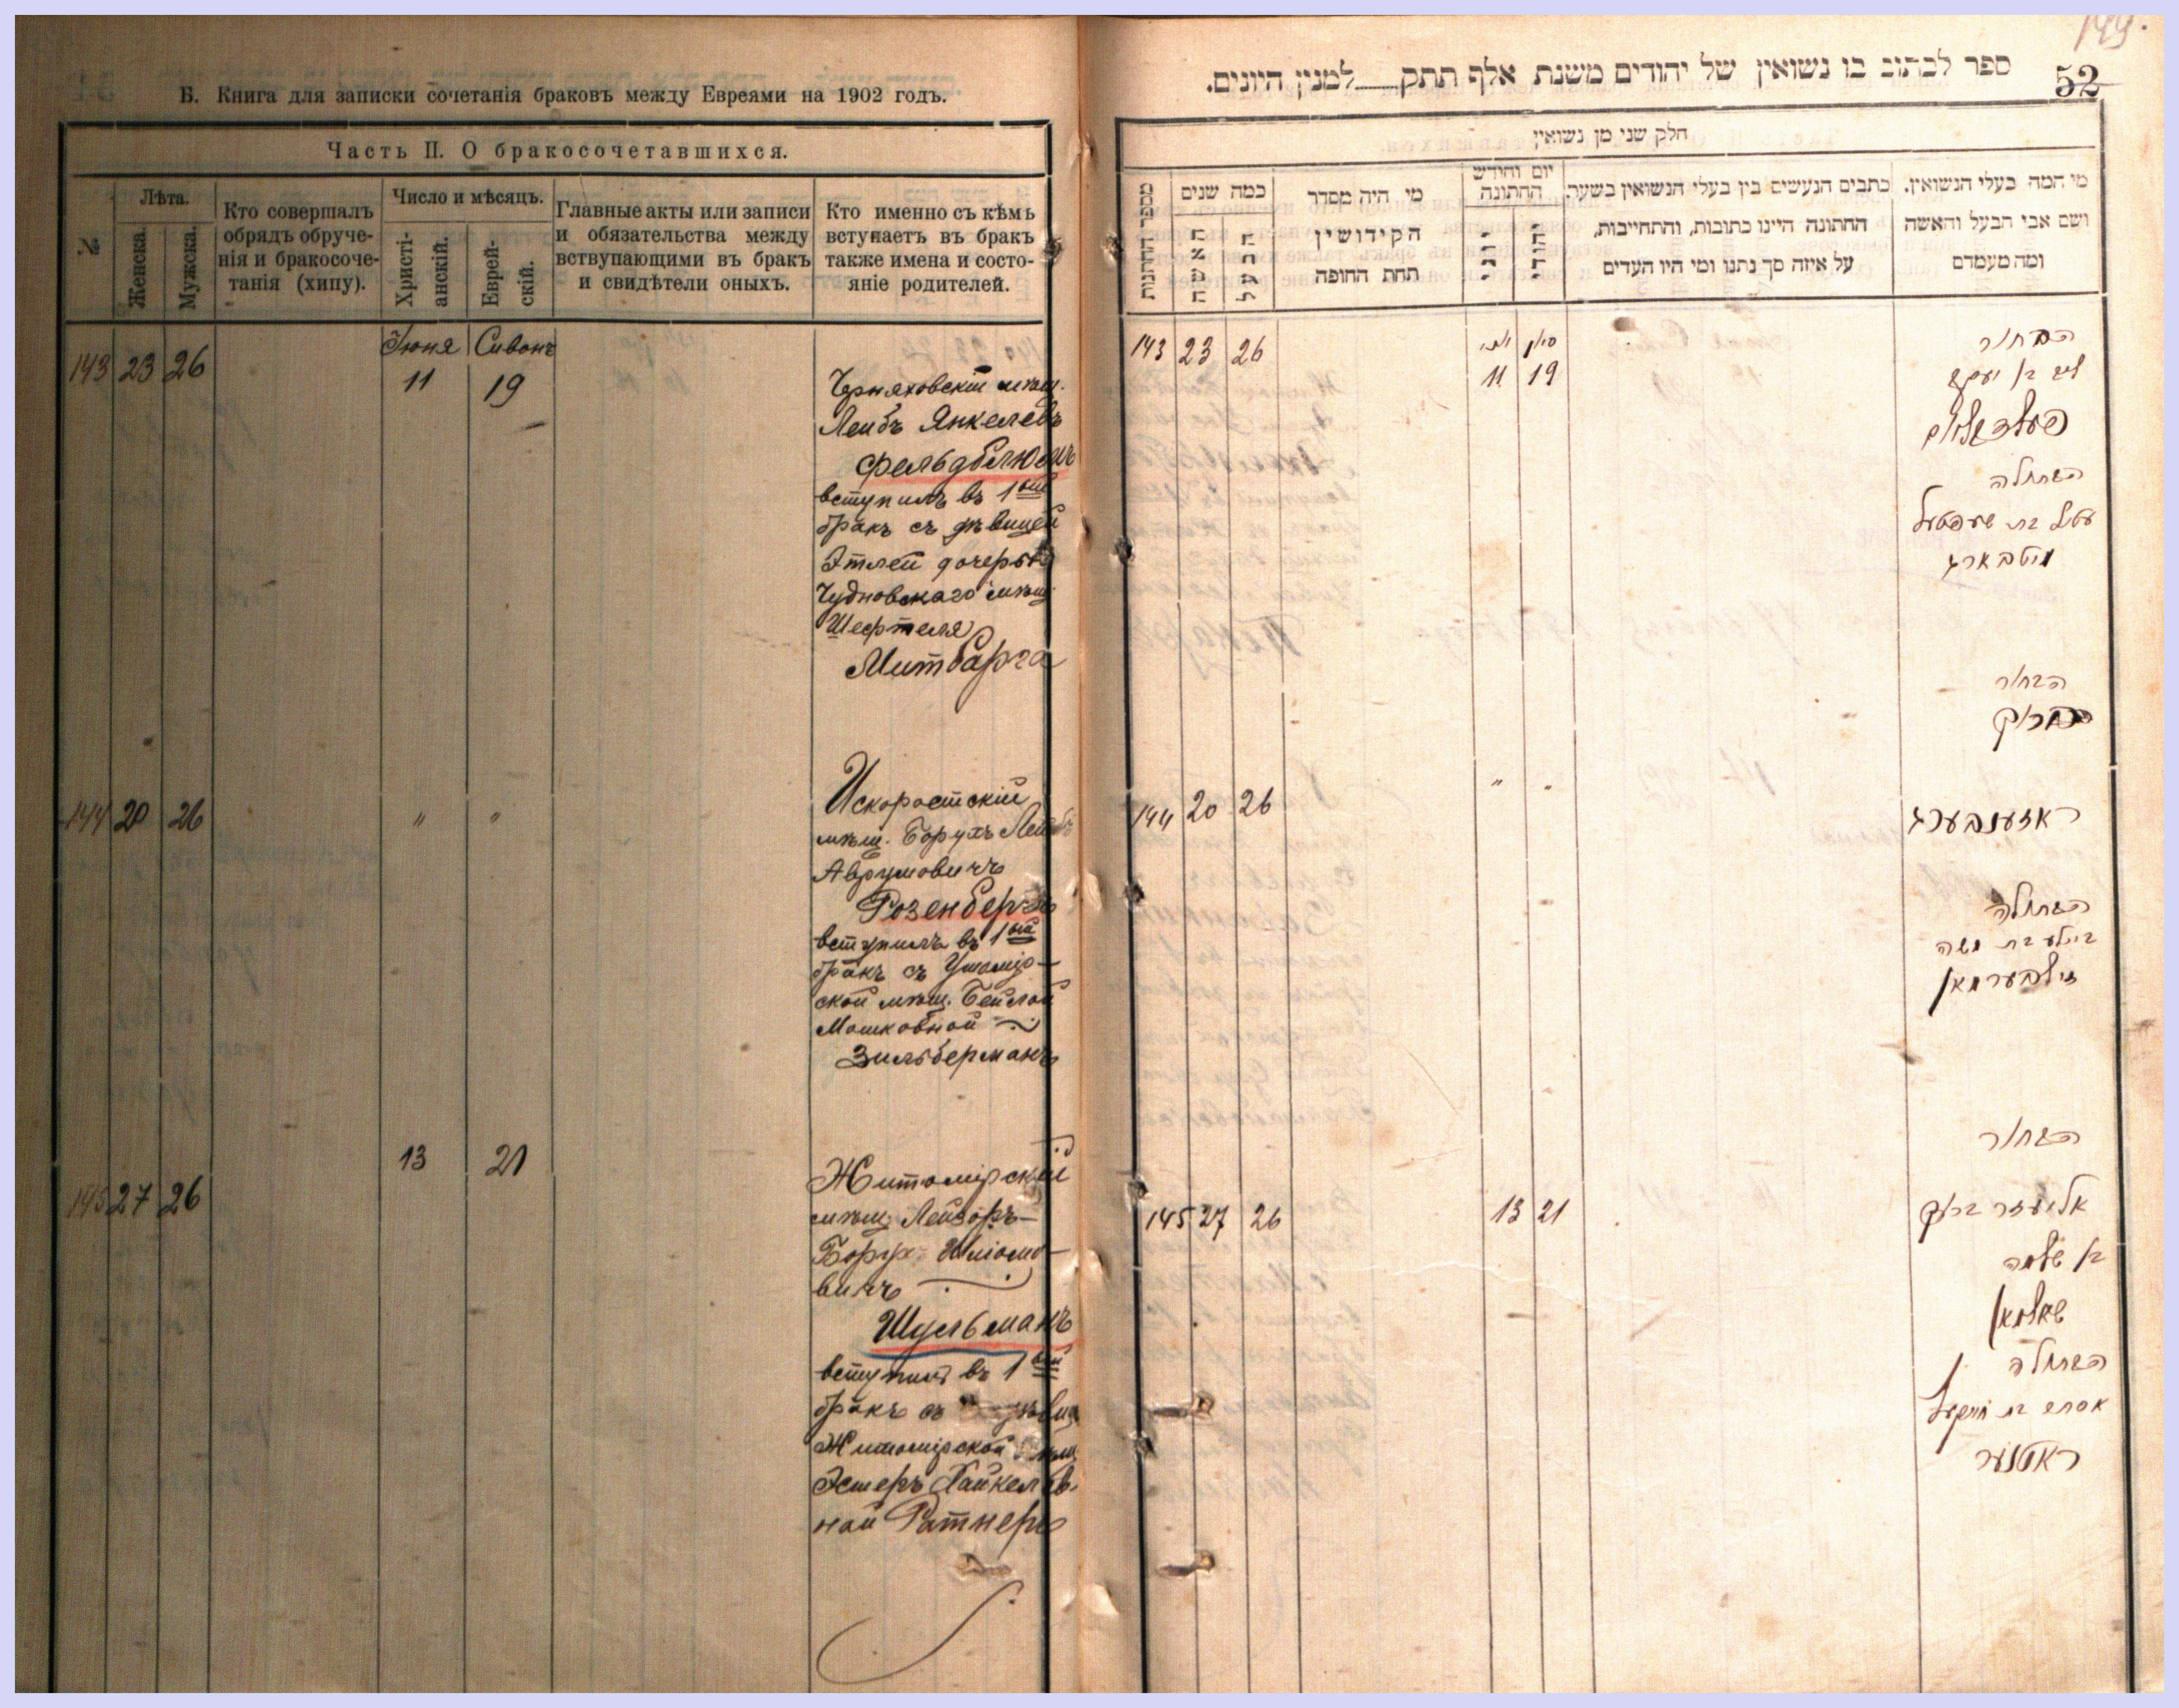 Б. Книга для записки сочетанія браковъ между Евреями на 1902 годъ.
Часть II. О бракосочетавшихся.
№
Лѣта.
Женска.
Мужска.
Кто совершалъ
обрядъ обруче-
нія и бракосоче-
танія (хипу).
Число и мѣсяцъ.
Христі-
анскій.
Еврей-
скій.
Главные акты или записи
и обязательства между
вствупающими въ бракъ
и свидѣтели оныхъ.
Кто именно съ кѣмъ
вступаетъ въ бракъ
также имена и состо-
яніе родителей.
143 23 26
Іюня Сивонъ
11 19
Черняховскій мѣщ.
Лейбъ Янкелевъ
Фельдблюмъ
вступилъ въ 1ый
бракъ съ дѣвицей
Этлей дочерью
Чудновскаго мѣщ.
Шефтеля
Митбарга
144 20 26 " "
Искоростскій
мѣщ. Борухъ Лейбъ
Аврумовичъ
Розенбергъ
вступилъ въ 1ый
бракъ съ Ушомір-
ской мѣщ. Бейлой
Мошковной
Зильберманъ
13 21
145 27 26
Житомірскій
мѣщ. Лейзоръ-
Борух Шлiомо-
вичъ
Шульманъ
вступилъ въ 1ый
бракъ съ
Житомірской мѣщ.
Эстеръ Хайкелев-
ной Ратнеръ
149.
52
ספר לכתוב בו נשואין של יהודים משנת אלף תתק למנין היונים.
חלק שני מן נשואין
מספר החתנות
כמה שנים
האשה
הבעל
מי היה מסדר
הקידושין
תחת החופה
יום וחודש
החתונה
יוני
יהודי
כתבים הנעשים בין בעלי הנשואין בשער.
החתונה היינו כתובות, והתחייבות,
על איזה סך נתנו ומי היו העדים
מי המה בעלי הנשואין.
ושם אבי הבעל והאשה
ומה מעמדם
143 23 26
11 19
הבחור
ליב בן יעקב
פעלדבלום
הבתולה
עטיל בת שעפטעל
מיטבארג
הבחור
144 20 26 " "
ראזענבערג
הבתולה
ביילע בת משה
זילבערמאן
הבחור
145 27 26 13 21
אליעזר ברוך
בן שלמה
שולמאן
הבתולה
אסתר בת חייקעל
ראטנער